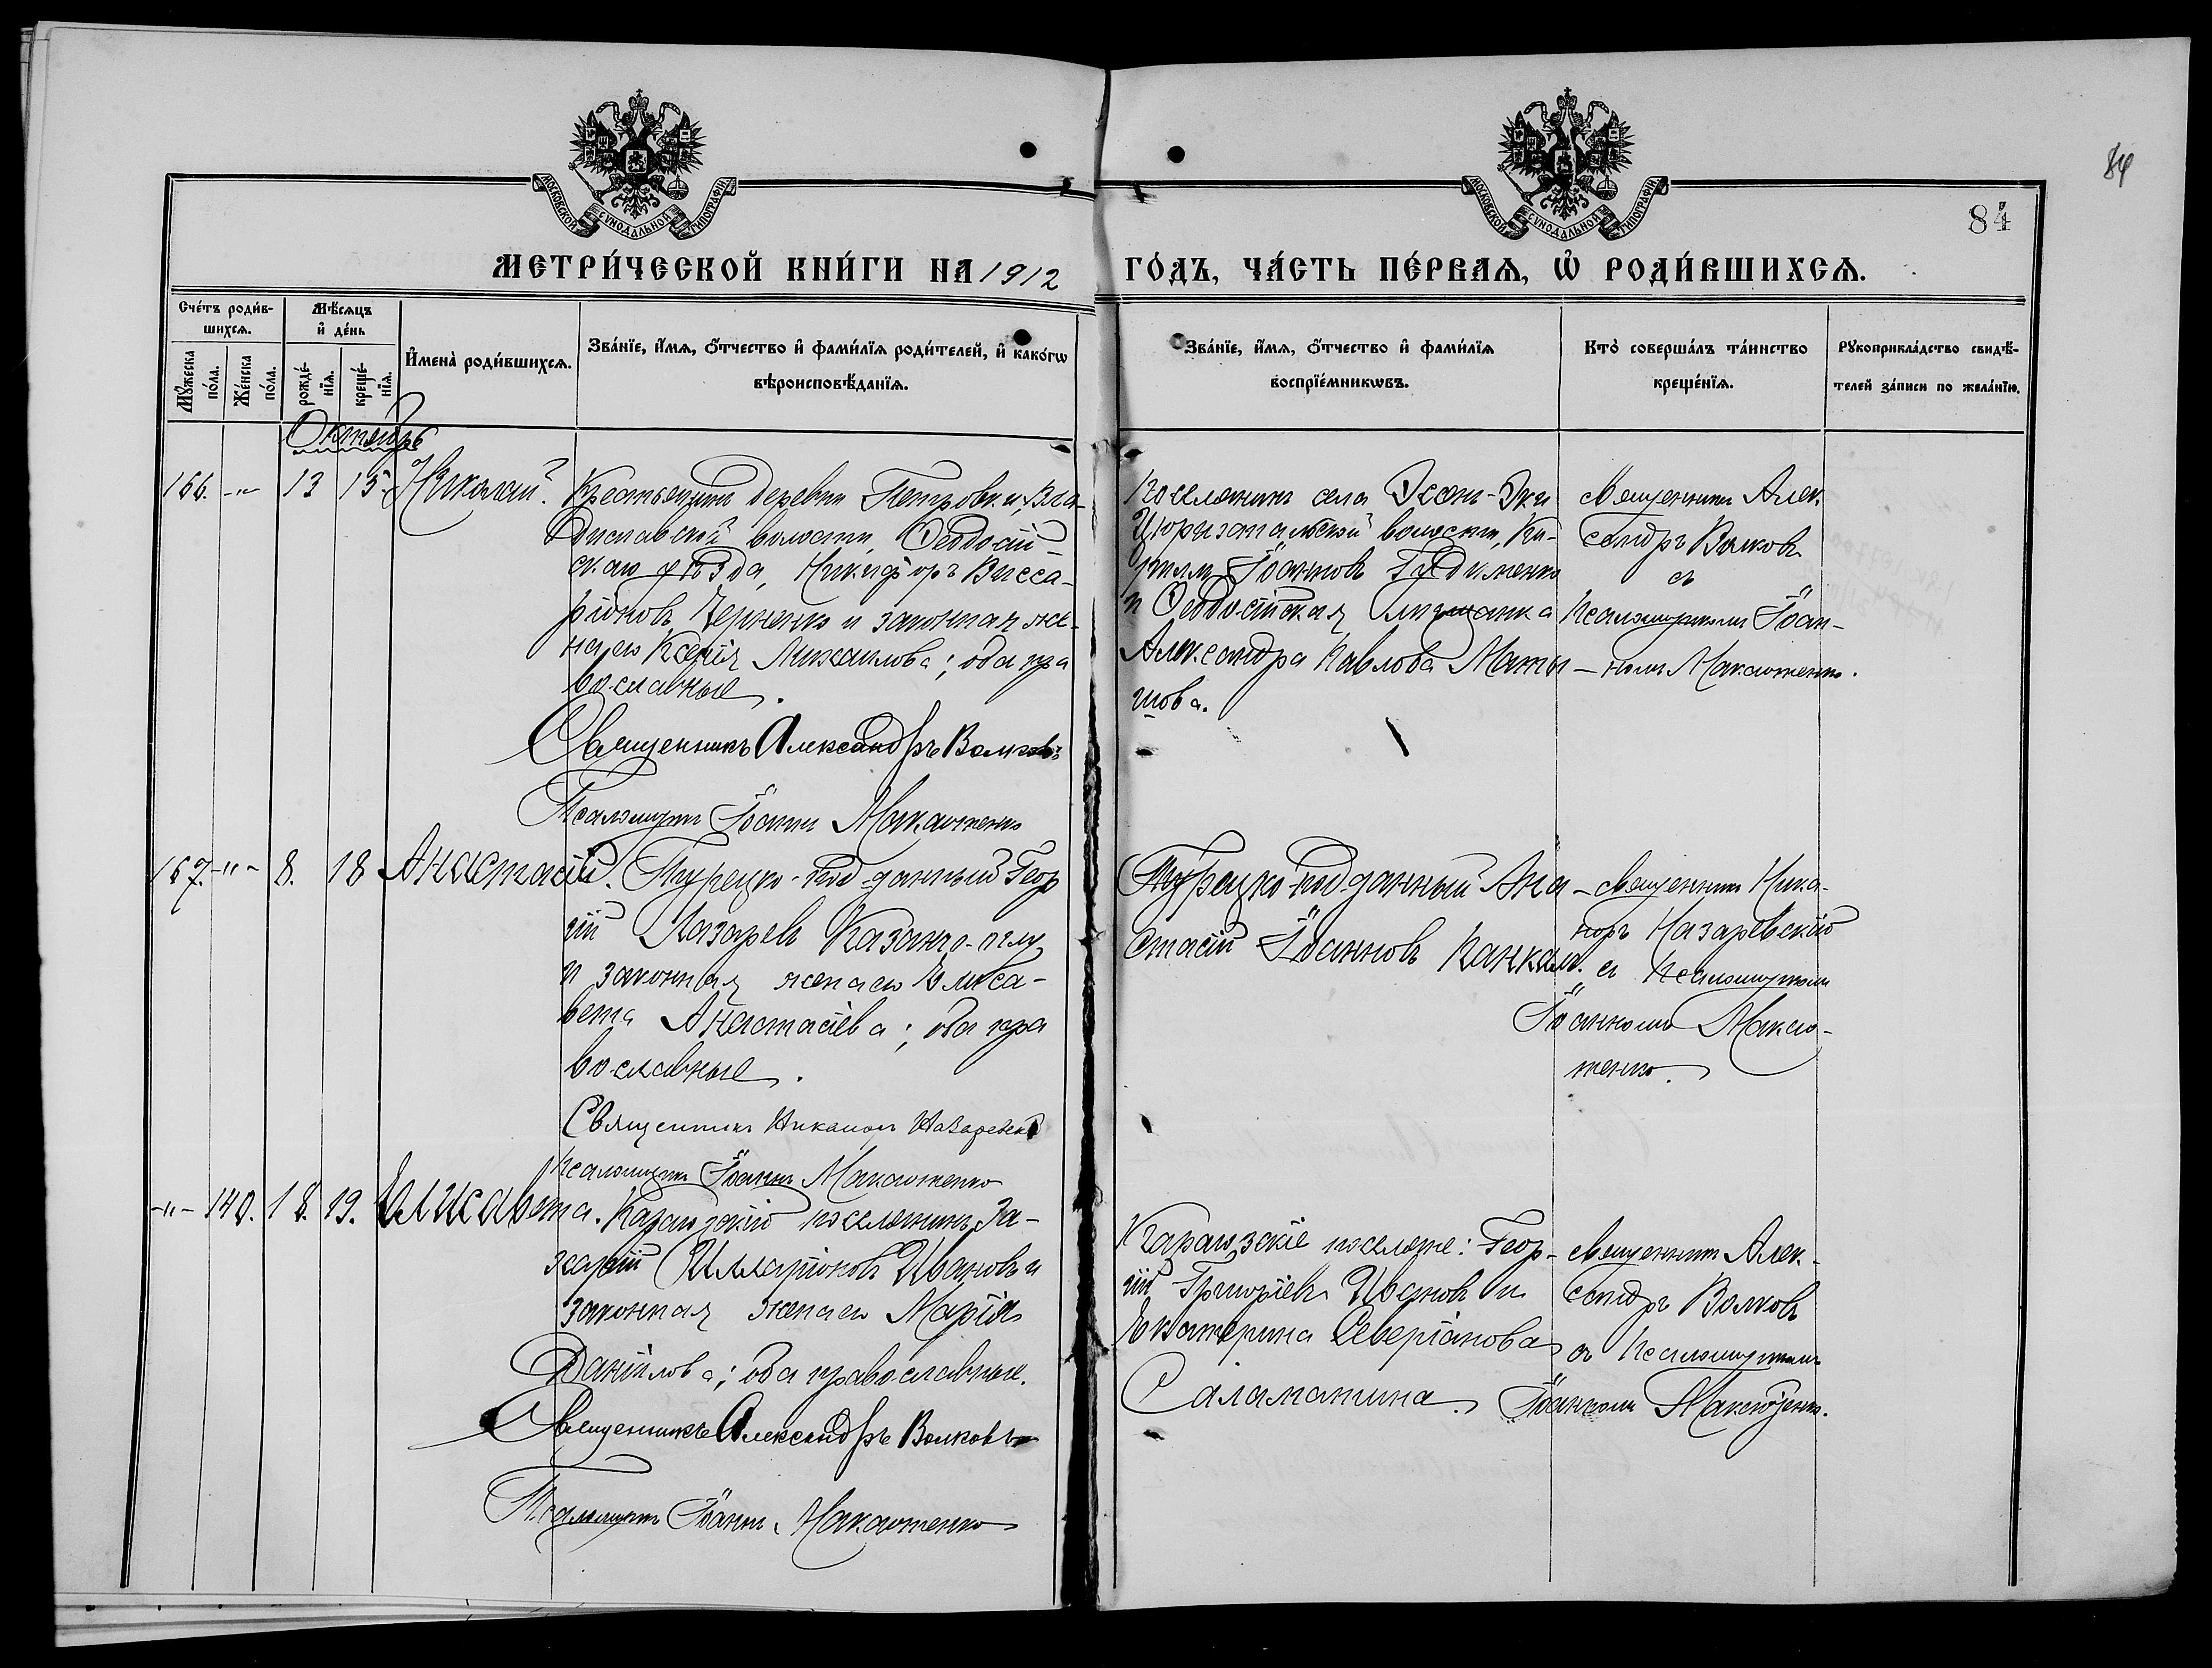 84
84
МОСКОВСКОЙ СѴНОДАЛЬНОЙ ТИПОГРАФІИ
МОСКОВСКОЙ СѴНОДАЛЬНОЙ ТИПОГРАФІИ
МЕТРИ́ЧЕСКОЙ КНИ́ГИ НА 1912 ГО́ДЪ, ЧА́СТЬ ПЕ́РВАѦ, Ѡ РОДИ́ВШИХСѦ.
Сче́тъ роди́в-
шихсѧ.
Мꙋ́жеска
по́ла.
Же́нска
по́ла.
Мѣ́сѧцъ
и҆ де́нь
рожде́-
нїѧ.
креще́-
нїѧ.
И҆мена̀ роди́вшихсѧ.
Зва́нїе, и҆́мѧ, ѻ҆́тчество и҆ фами́лїѧ роди́телей, и҆ како́гѡ
вѣроисповѣ́данїѧ.
Зва́нїе, и҆́мѧ, ѻ҆́тчество и҆ фами́лїѧ
воспрїе́мникѡвъ.
Кто̀ соверша́лъ та́инство
креще́нїѧ.
Рꙋкоприкла́дство свидѣ́-
телей за́писи по жела́нїю.
Октябрь
166. -"- 13 15 Николай.
Крестьянинъ деревни Петровки, Вла-
диславской волости, Ѳеодосій-
скаго уѣзда, Никифоръ Висса-
ріоновъ Черненко и законная же-
на его Ксенія Михаилова; оба пра
вославные.
Священникъ Александръ Волковъ
Псаломщикъ Іоаннъ Макотенко
Поселянинъ села
волости, Ки-
риллъ Іоанновъ Гудименко
и Ѳеодосійская мѣщанка
Александра Павлова Маты
шова.
Священникъ Алек-
сандръ Волковъ
съ
Псаломщикомъ Іоан-
номъ Макотенко.
167. -"- 8. 18 Анастасій.
Турецко-под-данный Геор
гій Лазаревъ
и законная жена его Елиса-
вета Анастасіева; оба пра
вославные.
Священникъ Никаноръ Назаревскій
Псаломщикъ Іоаннъ Макотенко
Турецко-подданный Ана-
стасій Іоанновъ
Священникъ Ника-
норъ Назаревскій
съ Псаломщикомъ
Іоанномъ Мако-
тенко.
-"- 140. 18. 19. Елисавета.
Карагозскій поселянинъ За-
харій Илларіоновъ Ивановъ и
законная жена его Марія
Даніилова; оба православные.
Священникъ Александръ Волковъ
Псаломщикъ Іоаннъ Макотенко
Карагозскіе поселяне: Геор-
гій Григоріевъ Ивановъ и
Екатерина Северіанова
Саламатина.
Священникъ Алек-
сандръ Волковъ
съ Псаломщикомъ
Іоанномъ Макотенко.